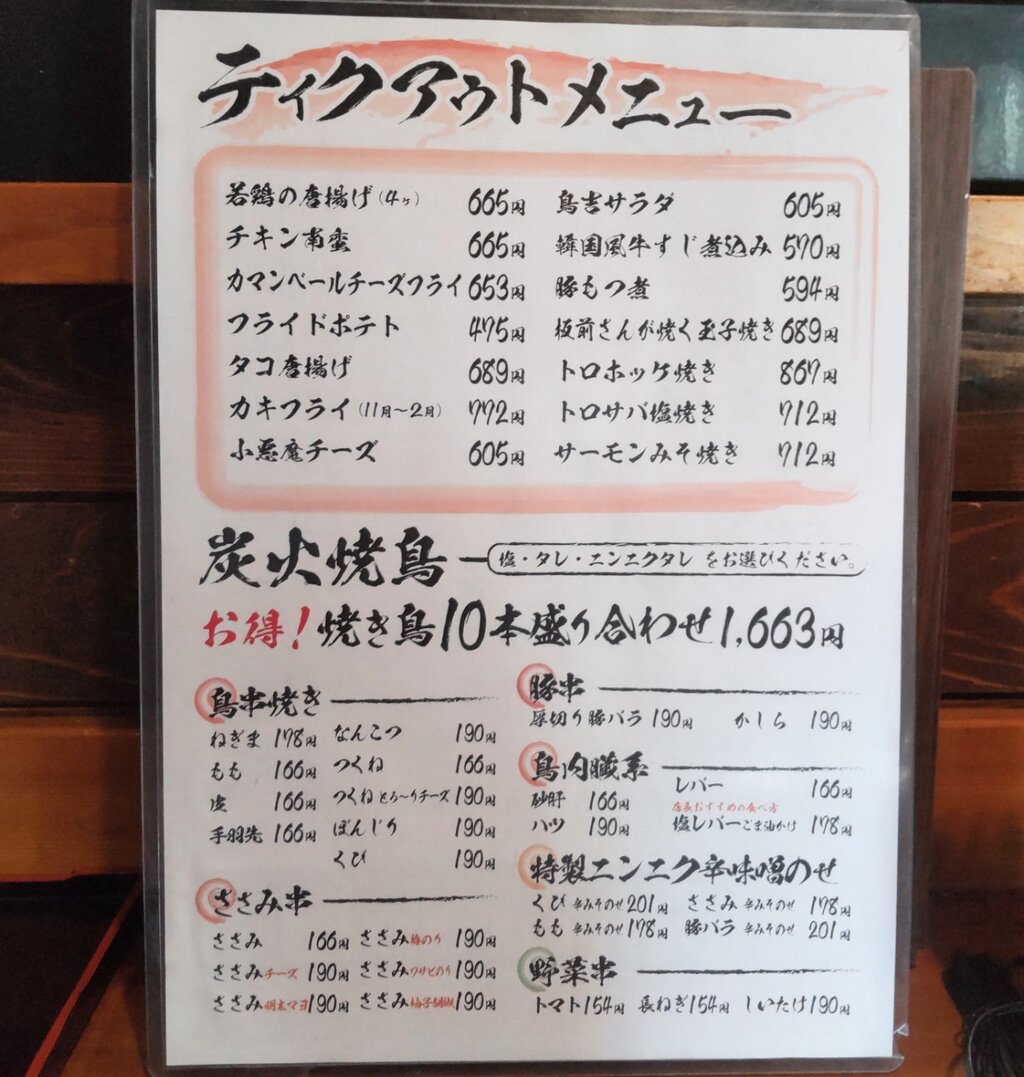 ティクアウトメニュー
若鶏の唐揚げ(4ヶ) 665円
チキン南蛮 665円
カマンベールチーズフライ 653円
フライドポテト 475円
タコ唐揚げ 689円
カキフライ(11月〜2月) 772円
小悪魔チーズ 605円
鳥吉サラダ 605円
韓国風牛すじ煮込み 570円
豚もつ煮 594円
板前さんが焼く玉子焼き 689円
トロホッケ焼き 867円
トロサバ塩焼き 712円
サーモンみそ焼き 712円
炭火焼鳥 塩・タレ・ニンニクタレ をお選びください。
お得!焼き鳥10本盛り合わせ1,663円
鳥串焼き
ねぎま 178円
もも 166円
皮 166円
手羽先 166円
なんこつ 190円
つくね 166円
つくねとろ〜りチーズ 190円
ぼんじり 190円
くび 190円
ささみ串
ささみ 166円 ささみ梅のり 190円
ささみチーズ 190円 ささみワサビのり 190円
ささみ明太マヨ 190円 ささみ柚子胡椒 190円
豚串
厚切り豚バラ 190円 かしら 190円
鳥内臓系
砂肝 166円
ハツ 190円
レバー 166円
店長おすすめの食べ方
塩レバーごま油かけ 178円
特製ニンニク辛味噌のせ
くび 辛みそのせ 201円 ささみ 辛みそのせ 178円
もも 辛みそのせ 178円 豚バラ 辛みそのせ 201円
野菜串
トマト154円 長ねぎ154円 しいたけ190円